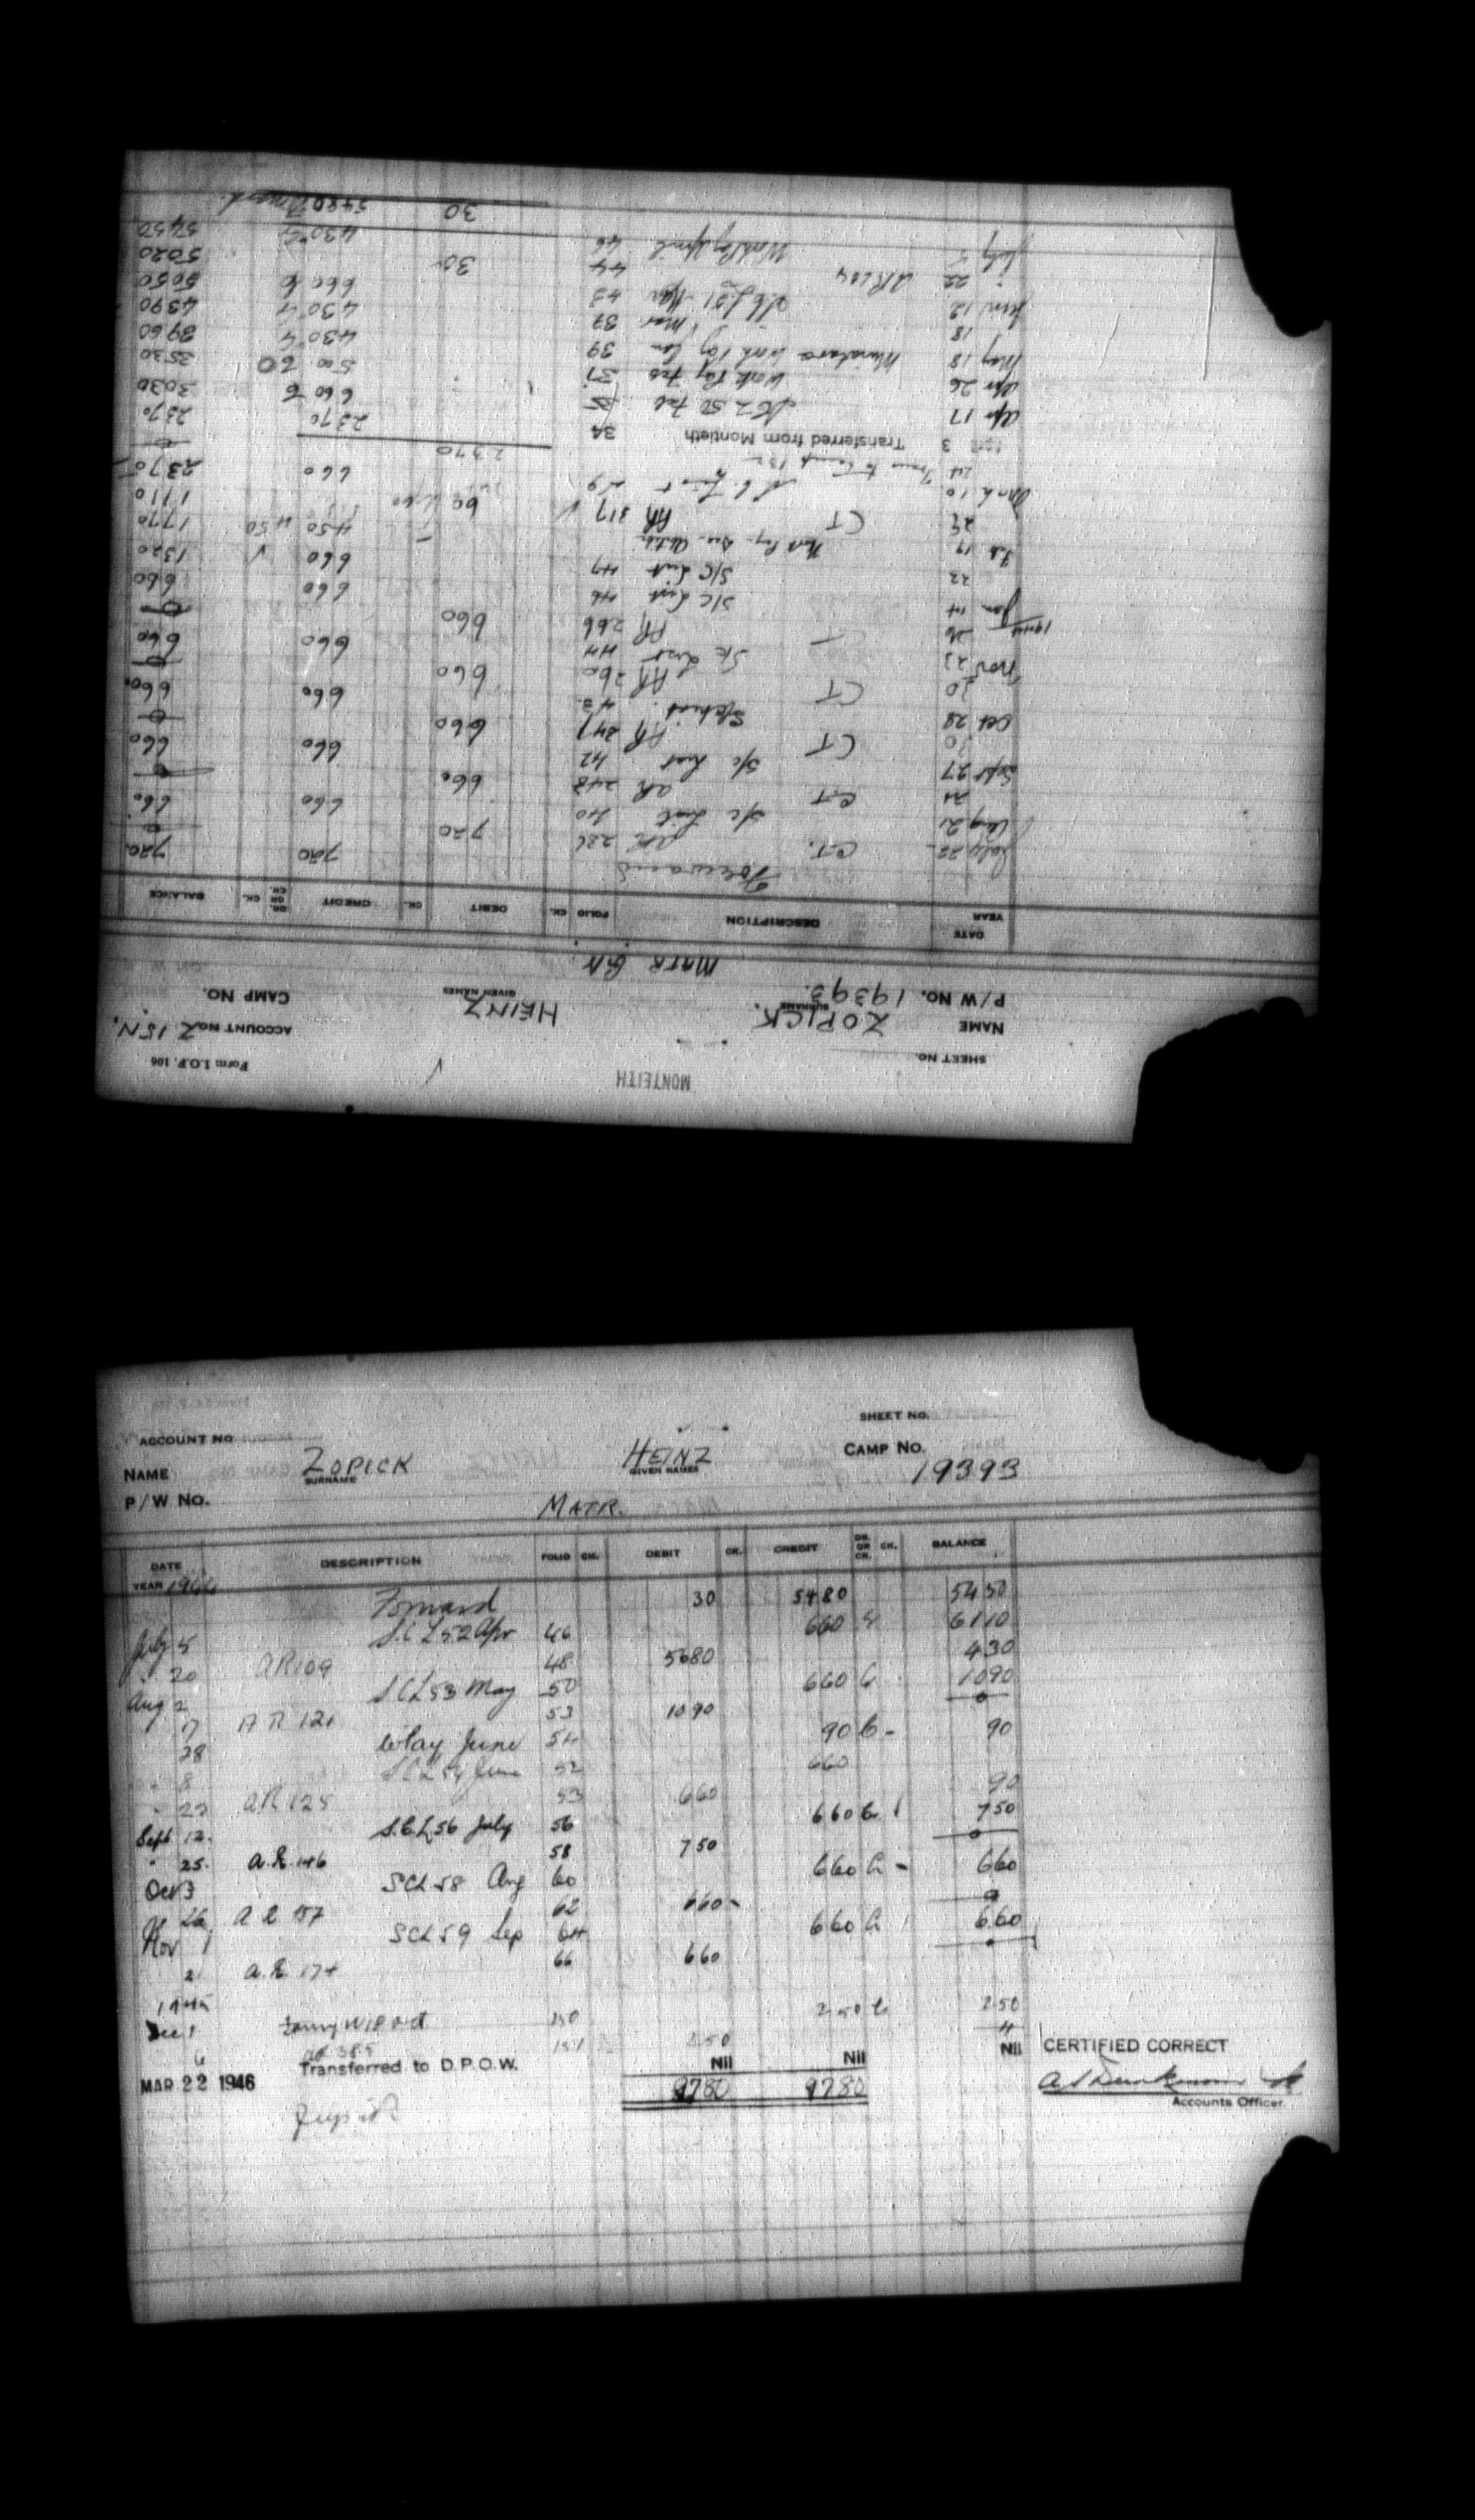 MONTEITH
SHEET NO. Form I.O.P. 106
NAME ZOPICK HEINZ ACCOUNT NO. Z 15 N.
SURNAME GIVEN NAMES
P/W NO. 19393. CAMP NO.
MATR GN
DATE YEAR DESCRIPTION FOLIO CK. DEBIT CK. CREDIT DR. OR CR. CK. BALANCE
Forward 720 720
July 22 C.T. AR 226 720 0
Aug 21 S/C List 40 660 660
21 C.T. AR 248 660 0
Sept 27 S/C List 42 660 660
30 CT AR 247 660 0
Oct 28 S/C List 43 660 660
30 CT AR 260 660 0
Nov 23 S/C List 44 660 660
26 CT AR 266 660 0
1944
Jan 14 S/C List 46 660 660
22 S/C List 47 660 1320
Feb 19 Work Pay 450 450 1770
29 CT AR 317 60 1710
March 10 S.C. List 660 2370
24 Trans to Camp 132 2370 0
3 Transferred from Montieth 34 2370 2370
Apr 17 SCL 50 Feb 35 660 3030
Apr 26 Work Pay Feb 37 500 3530
May 18 Work Pay Jan 39 430 3960
18 Mar 39 430 4390
June 12 SCL 51 Mar 43 660 5050
" 22 AR 104 44 30 5020
July 5 Work Pay April 46 430 5450
30 5480 Forward
SHEET NO.
ACCOUNT NO
NAME ZOPICK HEINZ CAMP NO.
SURNAME GIVEN NAMES
P/W NO. 19393
MATR.
DATE DESCRIPTION FOLIO CK. DEBIT CK. CREDIT DR. OR CR. CK. BALANCE
YEAR 1944
Forward 30 5480 5450
July 5 S.C.L 52 Apr 46 660 6110
" 20 AR 109 48 5680 430
Aug 2 SCL 53 May 50 660 Cr 1090
17 AR 121 53 1090 0
28 W Pay June 54 90 Cr - 90
" 8 SCL 54 June 52 660
" 22 AR 125 53 660 90
Sept 12. S.C.L 56 July 56 660 Cr 750
" 25. A.R. 146 58 750 0
Oct 3 SCL 58 Aug 60 660 Cr - 660
26 A R 157 62 660 - 0
Nov 1 SCL 59 Sep 64 660 Cr 660
2 A.R. 174 66 660
1945
Dec 1 150 250 Cr 250
6 AR 385 151 250
MAR 22 1946 Transferred to D.P.O.W. Nil Nil Nil CERTIFIED CORRECT
9780 9780
Accounts Officer.